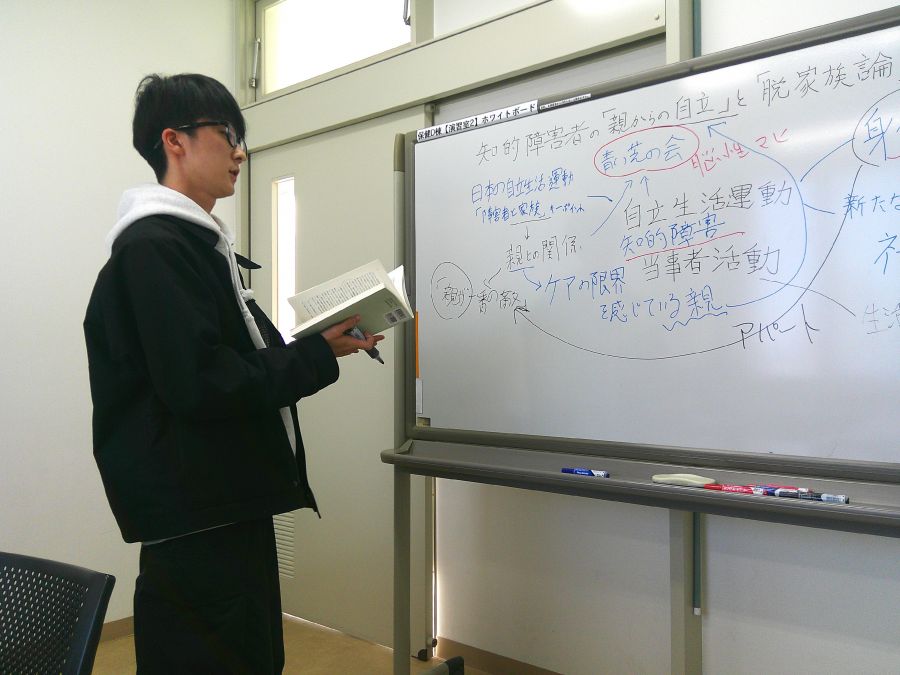 保健D棟【演習室2】ホワイトボード
知的障害者の「親からの自立」と「脱家族論
青い芝の会
脳性マヒ
身
日本の自立生活運動
「障害者と家族」キーポイント
自立生活運動
新たな
知的障害
親との関係
当事者活動
ケアの限界
を感じている親
生活
アパート